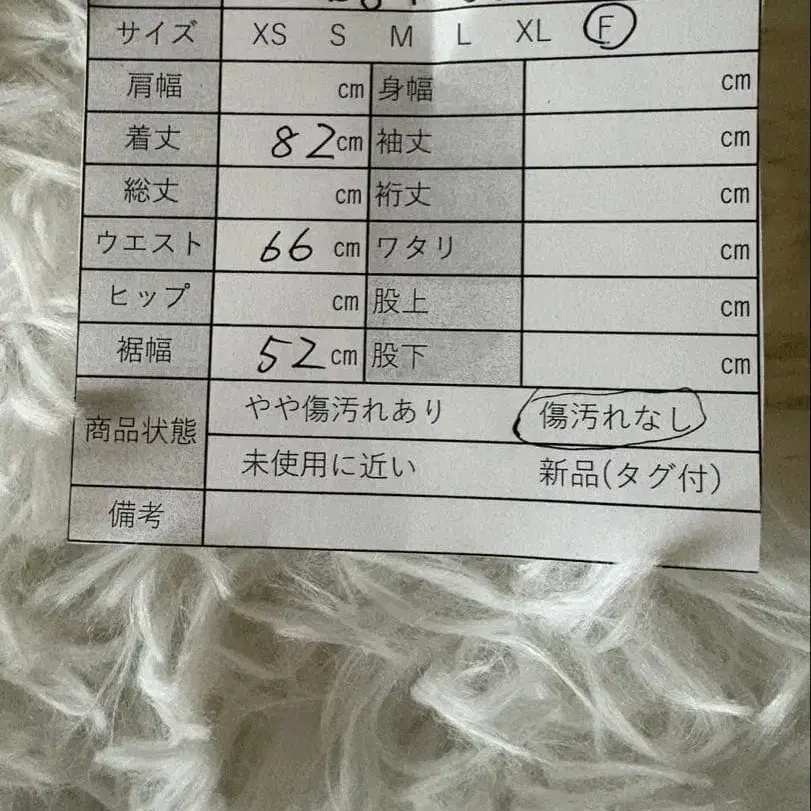 サイズ XS S M L XL F
肩幅 cm 身幅 cm
着丈 82cm 袖丈 cm
総丈 cm 裄丈 cm
ウエスト 66 cm ワタリ cm
ヒップ cm 股上 cm
裾幅 52cm 股下 cm
やや傷汚れあり 傷汚れなし
商品状態
未使用に近い 新品(タグ付)
備考